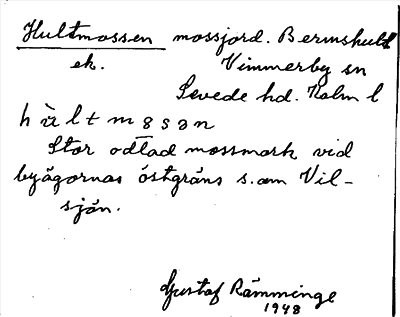 Hultmossen mossjord. Bermshult
ek. Vimmerby sn
Sevede hd. Kalm l
h ù l t m å s ə n
Stor odlad mossmark vid
byägornas östgräns s.om Vil-
sjön.
Gustaf Rämminge
1948